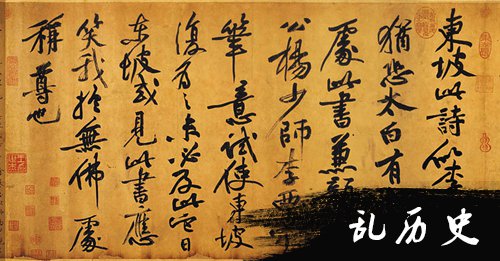 東坡此詩似李
猶恐太白有
處此書兼顏
公楊少師李西
筆意試使東坡
復為之未必及此它日
東坡或見此書應
笑我於無佛處
稱尊也
乱历史